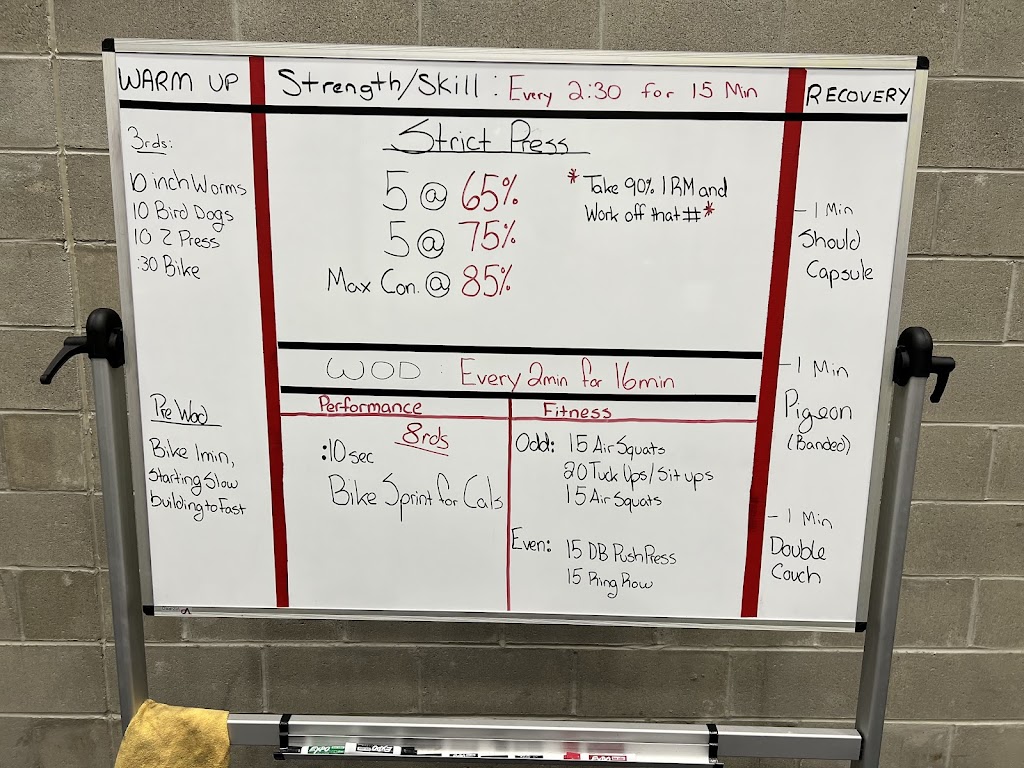 WARM UP
3rds:
10 inch Worms
10 Bird Dogs
10 Z Press
:30 Bike
Pre Wod
Bike 1min,
Starting Slow
building to Fast
Strength/Skill : Every 2:30 for 15 Min
Strict Press
5 @ 65%
5 @ 75%
Max Con. @ 85%
* Take 90% 1RM and
Work off that #*
WOD : Every 2min for 16min
Performance
8rds
:10sec
Bike Sprint for Cals
Fitness
Odd: 15 Air Squats
20 Tuck Ups/Sit ups
15 Air Squats
Even: 15 DB Push Press
15 Ring Row
RECOVERY
- 1 Min
Should
Capsule
- 1 Min
Pigeon
(Banded)
- 1 Min
Double
Couch
EXPO